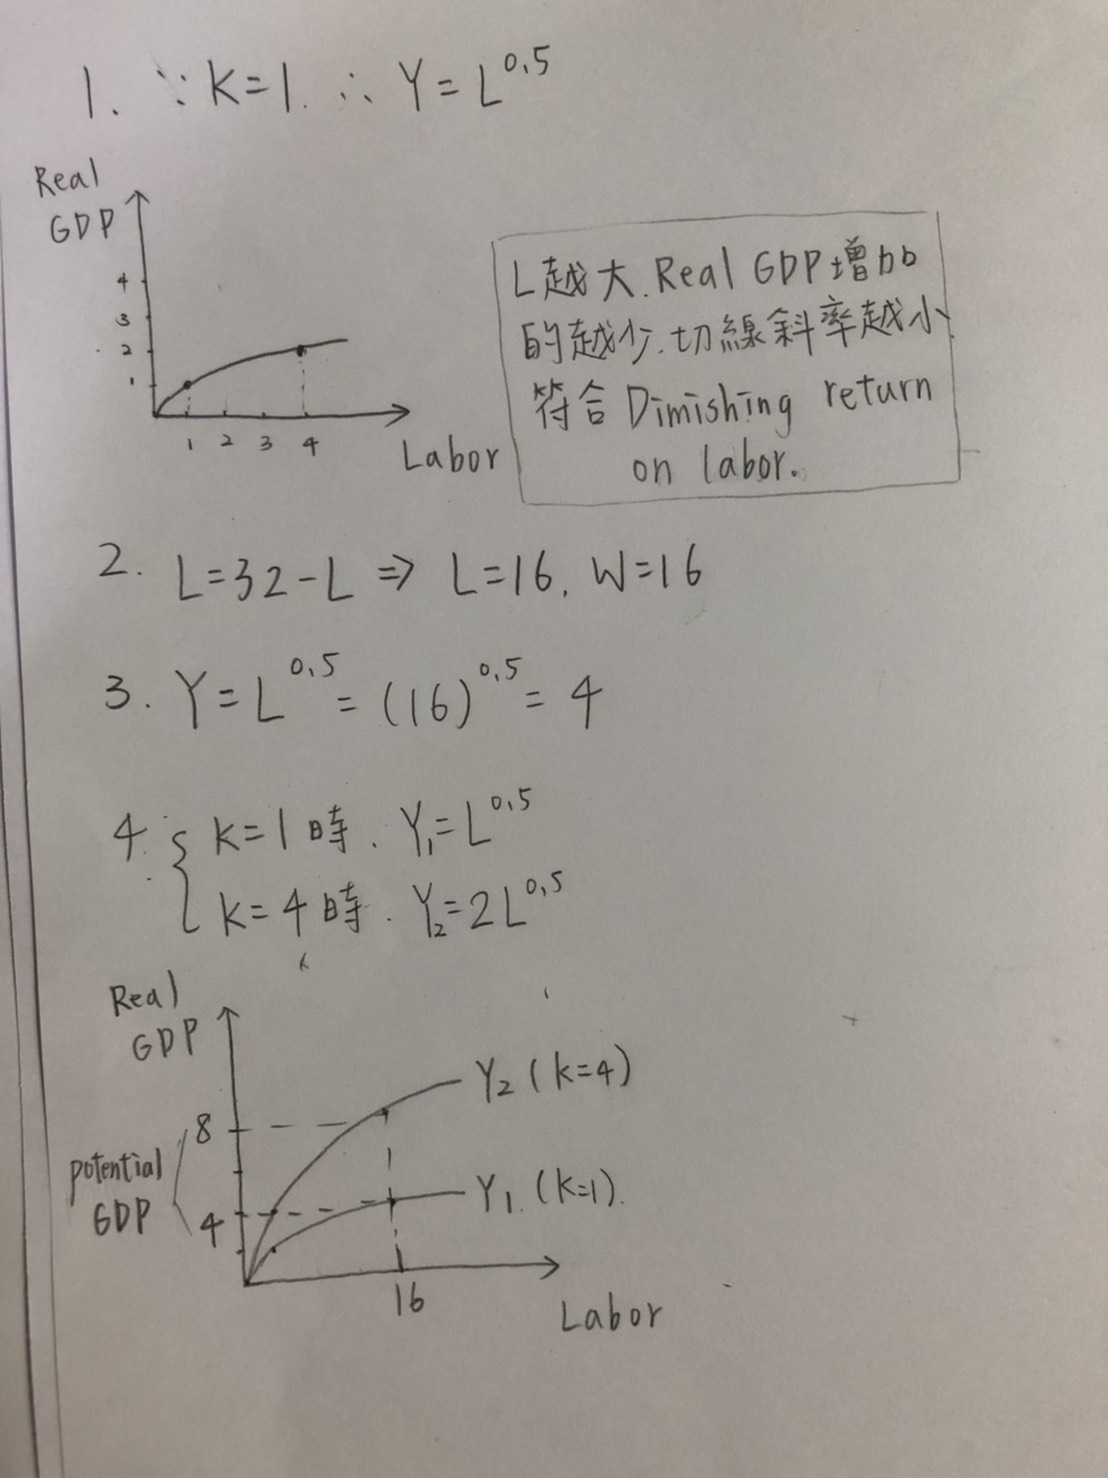 1. ∵ K=1. ∴ Y=L^0.5
Real
GDP
4
3
2
1
1 2 3 4
Labor
L越大.Real GDP增加
的越少.切線斜率越小
符合Dimishing return
on labor.
2. L=32-L ⇒ L=16. W=16
3. Y=L^0.5=(16)^0.5=4
4. { K=1時. Y₁=L^0.5
K=4時. Y₂=2L^0.5
Real
GDP
Y₂ (k=4)
8
potential
GDP
4
Y₁. (k=1).
16
Labor